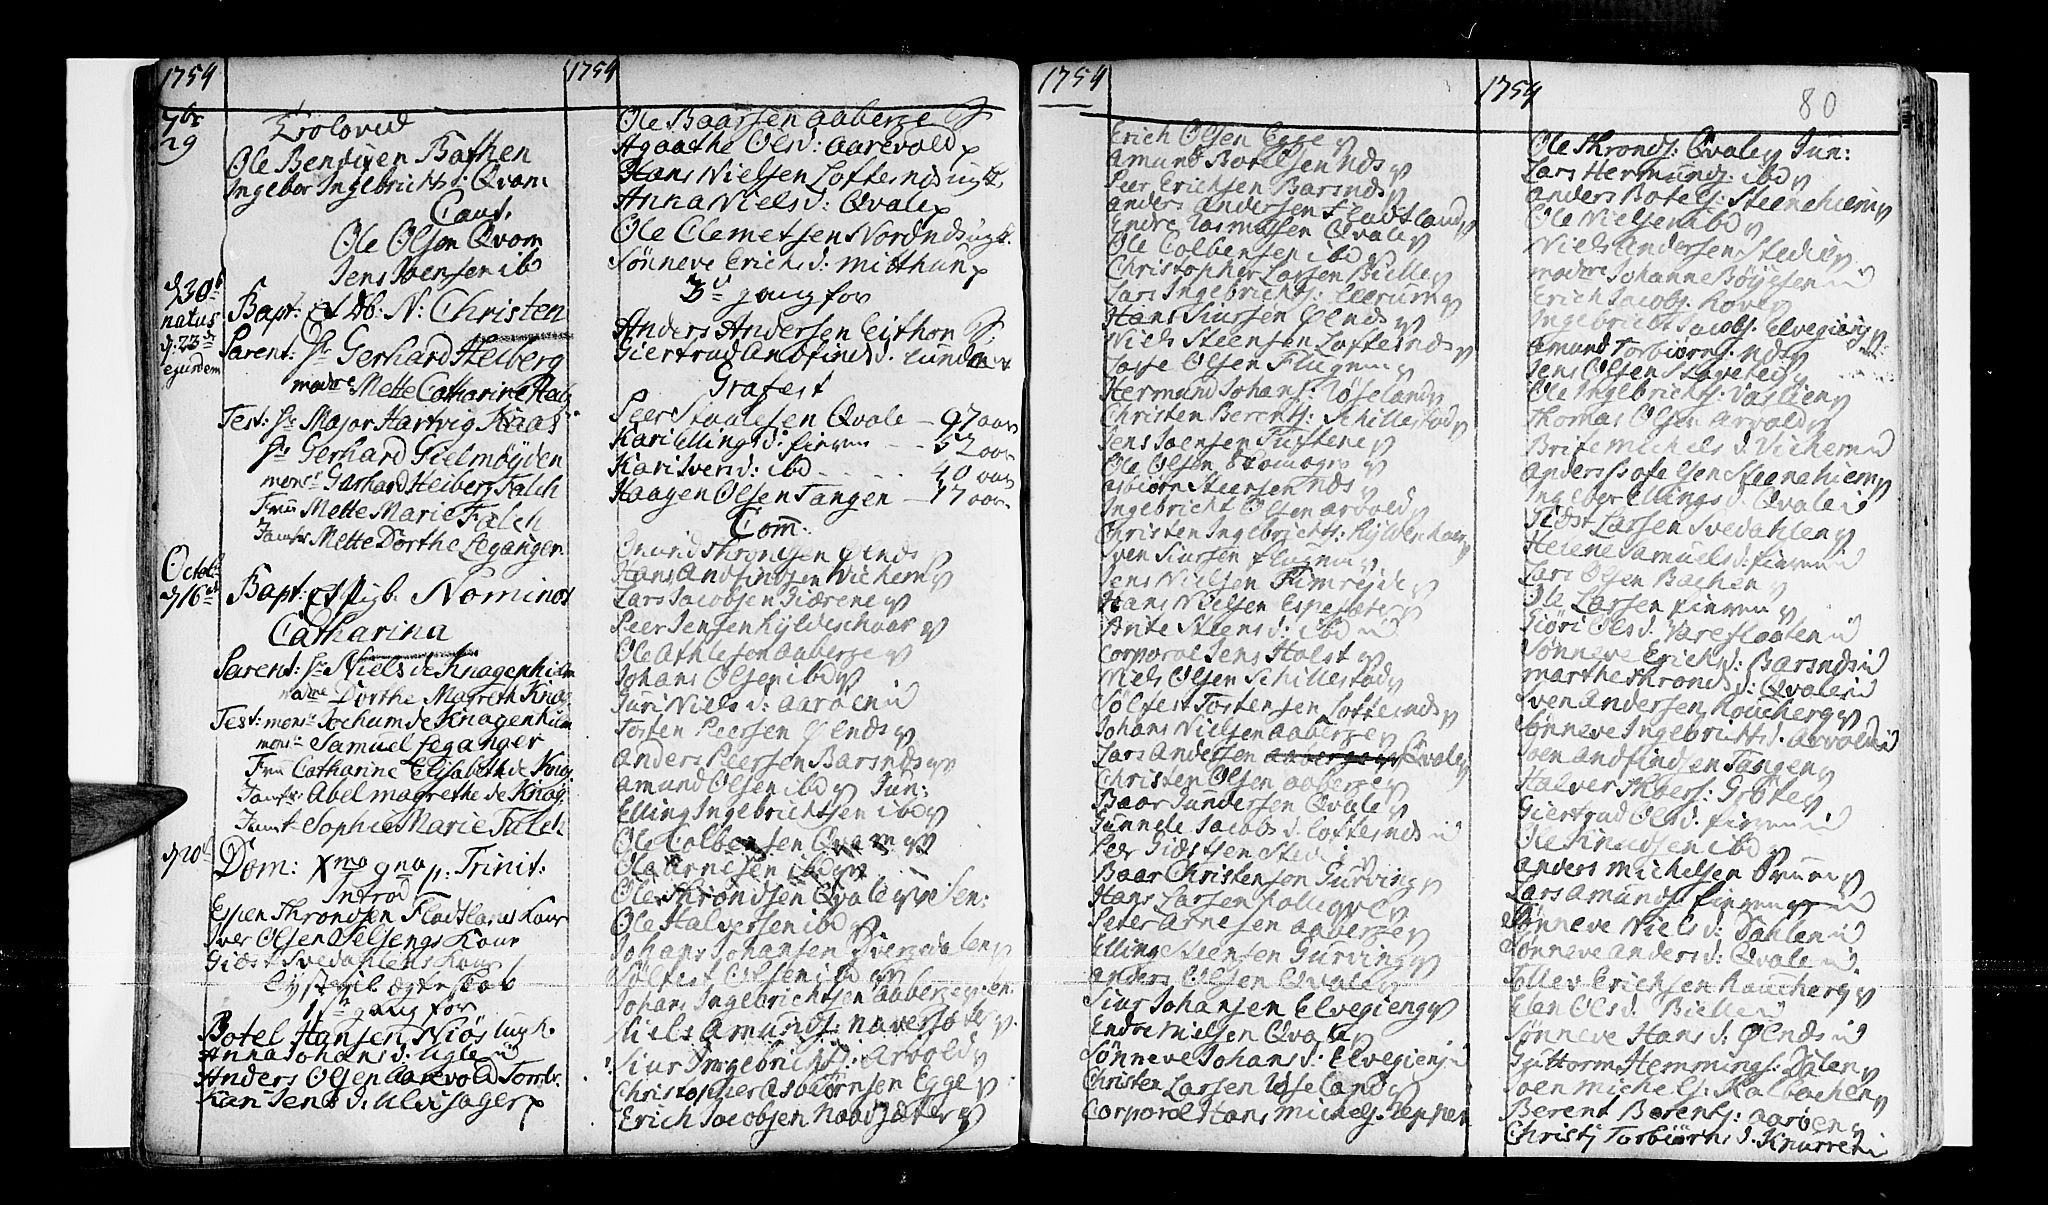 1754
7br 29
Trolovid
Ole Bendixen Bathen
Ingebor Ingebrichts d: Qvam
Caut.
Ole Olsen Qvam
Jens Joensen ibd
natus
ejusdem
Bapt: et Db. N: Christen
Parent: Sr Gerhard Heiberg
madme Mette Catharine Heib
Test: Hr Major Hartvig Kaas
Hr Gerhard Gielmøyden
monsr Gerhard Heiberg Falch
Fru Mette Marie Falch
Jomfr Mette Dorthe Leganger
Octob:
d 16
Bapt: et Nominat
Catharina
Parent: Sr Niels de Knagenhielm
madme Dorthe Magreth Knag
Test: monsr Jochum de Knagenhielm
monsr Samuel Leganger
Fru Catharine Elisabeth de Knag
Jomfr: Abel magrethe de Knag
Jomfr Sophie Marie Falch
d 20
Dom: Xma gna p: Trinit:
Introd
Espen Throndsen Fladtlands Kone
Iver Olsen Selsengs Kone
Giest Svedahlens Kone
Lyst til Ægteskab
1te gang for
Botel Hansen Niøs ungk.
Anna Johans d: Ugle
Anders Olsen Aarevold
Kari Jens d: Ulvisager
1754
Ole Baarsen Aaberge
Agaathe Ols d: Aarevold
Hans Nielsen Loftesnds ungk
Anna Niels d: Qvale
Ole Clemetsen Nordnds ungk.
Sønneve Erichs d: Mitthun
3die gang for
Anders Andersen Eithon
Giertrud Andfinds d. Lunden
Grafest
Peer Staalesen Qvale — 97 aar
Kari Ellings d: fimm — 52 aar
Kari Ivers d: ibd 40 aar
Haagen Olsen Tangen — 77 aar
Com:
Omund Throndsen Ølnds
Hans Andfindsen Vichem
Lars Jacobsen Giærene
Peer Jensen Kyldeschaar
Ole Athleson Aaberge
Johans Olsen ibd
Guri Niels d: Aarøen
Tosten Peersen Ølnds
Anders Peersen Barsnds
Amund Olsen ibd Jun:
Elling Ingebrichtsen ibd
Ole Colbensen Qvam
Ole Arnesen ibd
Ole Throndsen Qvale Sen:
Ole Halversen ibd
Johans Johansen Dvergedalen
Søltest Colsen ibd
Johans Ingebrichtsen Aaberge
Niels Amunds: Naversæte
Siur Ingebrichts: Arvold
Christopher Asbiørnsen Egge
Erich Jacobsen Navdsæter
1754
Erich Olsen Egge
Amund Botelsen Nds
Peer Erichsen Barsnds
Anders Andersen Fladtland
Endre Rasmussen Qvale
Ole Colbensen ibd
Christopher Larsen Bielle
Lars Ingebrichts: Leerum
Hans Siursen Ølnds
Niels Steensen Loftesnds
Lasse Olsen Flugum
Hermund Johans: Røseland
Christen Berents: Schillestad
Jens Joensen Tustene
Ole Olsen Stomogre
Asbiørn Steersen Nds
Ingebricht Olsen Arvold
Christen Ingebrichts: Kyldenhaar
Sven Siursen Flugum
Jens Nielsen Fimreyde
Hans Nielsen Espesæter
Ante Steens d: ibd
Corporal Jens Holst
Niels Olsen Schillestad
Søltest Tostensen Loftesnds
Johans Nielsen Aaberge
Lars Andersen Aaberge Qvale
Christen Olsen Aaberge
Baar Gundersen Qvale
Gunnele Jacobs d: Loftesnds
Peer Giestsen Sted
Baar Christensen Gurving
Hans Larsen
Peter Arnesen Aaberge
Elling Steensen Gurving
Anders Olsen Qvale
Siur Johansen Elvegieng
Endre Nielsen Qvale
Sønneve Johans d: Elvegieng
Christen Larsen Røseland
Corporal Hans Michels: Reppen
1754
80
Ole Thronds: Qvale Jun:
Lars Hermunds: ibd
Anders Botels: Steenehiem
Ole Nielsen ibd
Niels Andersen Stedie
madme Johanne Bøysen
Erich Jacobs: Kove
Ingebricht Jacobs: Elvegieng
Amund Torbiørns: Nds
Jens Olsen Slovsted
Ole Ingebrichts: Vaslien
Thomas Olsen Arvold
Brite Michels d: Vichem
Anders Botelsen Steenehiem
Ingeber Ellings d: Qvale
Giest Larsen Svedahlen
Helene Samuels d: fimm
Lars Olsen Bachen
Ole Larsen fimm
Giøri Ols d: Vareflaaten
Sønneve Erichs d: Barsnds
Marthe Thronds d: Qvale
Sven Andersen Rouberg
Sønneve Ingebrichts d: Arvold
Joen Andfindsen Tangen
Halver Thoers: Grøte
Giertrud Ols d: fimm
Ole Knudsen ibd
Anders Michelsen Pruun
Lars Amunds: fimm
Sønneve Niels d: Dahlen
Sønneve Anders d: Qvale
Tollev Erichsen Rauberg
Elen Ols d: Bielle
Sønneve Hans d: Ølnds
Guttorm Hemmings: Dalen
Joen Michels: Kalbachen
Berent Berents: Aarøen
Christi Torbiørns d: Knurre